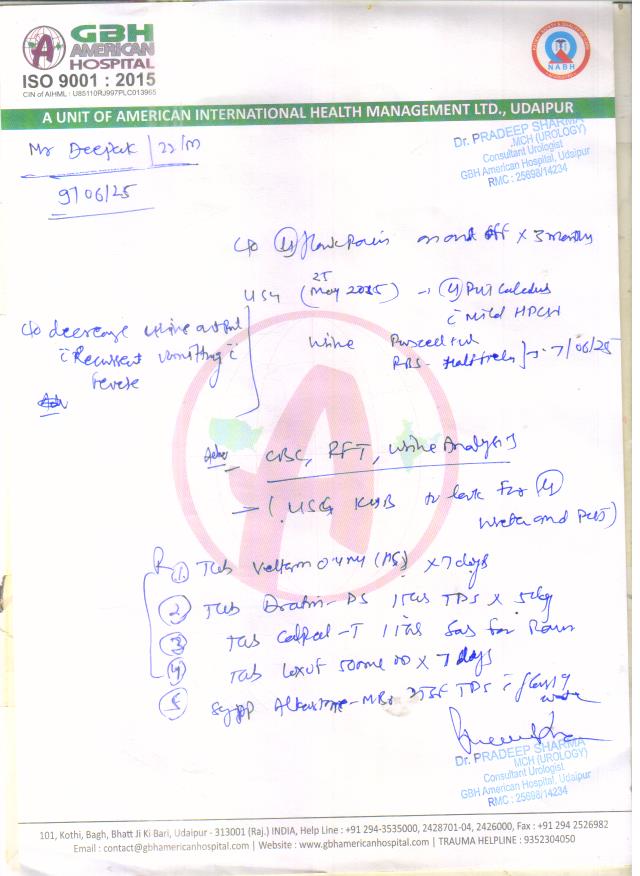 GBH
AMERICAN
HOSPITAL
ISO 9001 : 2015
CIN of AIHML : U85110RJ997PLC013965
NABH
A UNIT OF AMERICAN INTERNATIONAL HEALTH MANAGEMENT LTD., UDAIPUR
Dr. PRADEEP SHARMA
MCH (UROLOGY)
Consultant Urologist
GBH American Hospital, Udaipur
RMC : 25698/14234
Mr Deepak
9/06/25
c/o Flank Pain on and off x 3 months
USG (25 May 2025) → PUJ Calculus
c mild HDN
c/o decrease urine output
c Recurrent vomitting c
fever
urine Puscell
RBS - 7/06/25
Adv CBC, RFT, Urine Analysis
→ ( USG KUB to look for
Ureter and PUJ)
Rx 1. Tab Veltam 0.4mg (HS) x 7 days
2 Tab Drotin-DS 1 Tab TDS x
3 Tab 1 Tab SOS for Pain
4 Tab 500mg OD x 7 days
5 Syrup TDS c glass of water
Dr. PRADEEP SHARMA
MCH (UROLOGY)
Consultant Urologist
GBH American Hospital, Udaipur
RMC : 25698/14234
101, Kothi, Bagh, Bhatt Ji Ki Bari, Udaipur - 313001 (Raj.) INDIA, Help Line : +91 294-3535000, 2428701-04, 2426000, Fax : +91 294 2526982
Email : contact@gbhamericanhospital.com | Website : www.gbhamericanhospital.com | TRAUMA HELPLINE : 9352304050